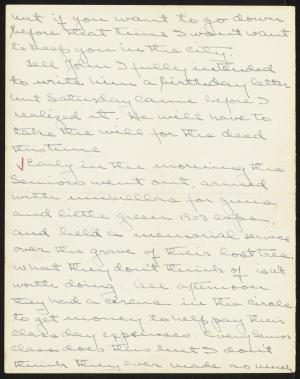 but if you want to go down
before that time I won't want
to keep you in the city.
Tell John I fully intended
to write him a birthday letter
but Saturday came before I
realized it. He will have to
take the will for the deed
this time.
Early in the morning the
Seniors went out, armed
with umbrellas for guns
and little green 1903 caps,
and held a memorial service
over the grave of their lost tree.
What they don't think of isn't
worth doing. All afternoon
they had a circus in the circle
to get money to help pay their
class day expenses. Every Senior
class does this but I don't
think they ever made so much